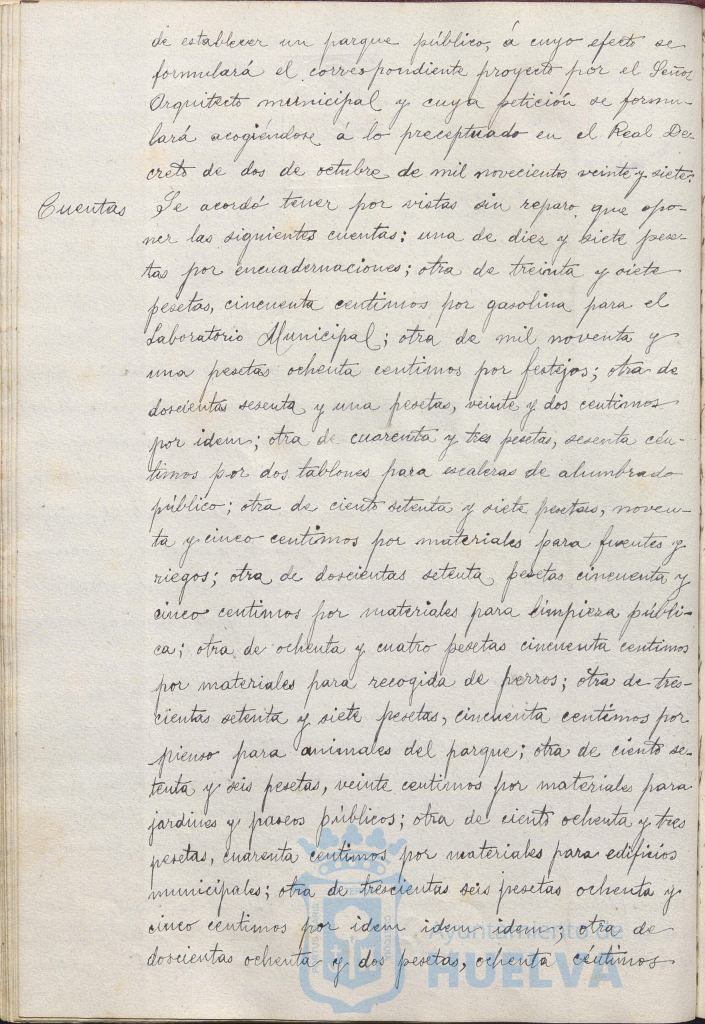 de establecer un parque público, á cuyo efecto se
formulará el correspondiente proyecto por el Señor
Arquitecto municipal y cuya petición se formu-
lará acogiéndose á lo preceptuado en el Real De-
creto de dos de octubre de mil novecientos veinte y siete.
Cuentas Se acordó tener por vistas sin reparo que opo-
ner las siguientes cuentas: una de diez y siete pese-
tas por encuadernaciones; otra de treinta y siete
pesetas, cincuenta centimos por gasolina para el
Laboratorio Municipal; otra de mil noventa y
una pesetas ochenta centimos por festejos; otra de
doscientas sesenta y una pesetas, veinte y dos centimos
por idem; otra de cuarenta y tres pesetas, sesenta cén-
timos por dos tablones para escaleras de alumbrado
público; otra de ciento setenta y siete pesetas, noven-
ta y cinco centimos por materiales para fuentes y
riegos; otra de doscientas setenta pesetas cincuenta y
cinco centimos por materiales para limpieza públi-
ca; otra de ochenta y cuatro pesetas cincuenta centimos
por materiales para recogida de perros; otra de tres-
cientas setenta y siete pesetas, cincuenta centimos por
pienso para animales del parque; otra de ciento se-
tenta y seis pesetas, veinte centimos por materiales para
jardines y paseos públicos; otra de ciento ochenta y tres
pesetas, cuarenta centimos por materiales para edificios
municipales; otra de trescientas seis pesetas ochenta y
cinco centimos por idem idem idem; otra de
doscientas ochenta y dos pesetas, ochenta céntimos
Ayuntamiento de
HUELVA